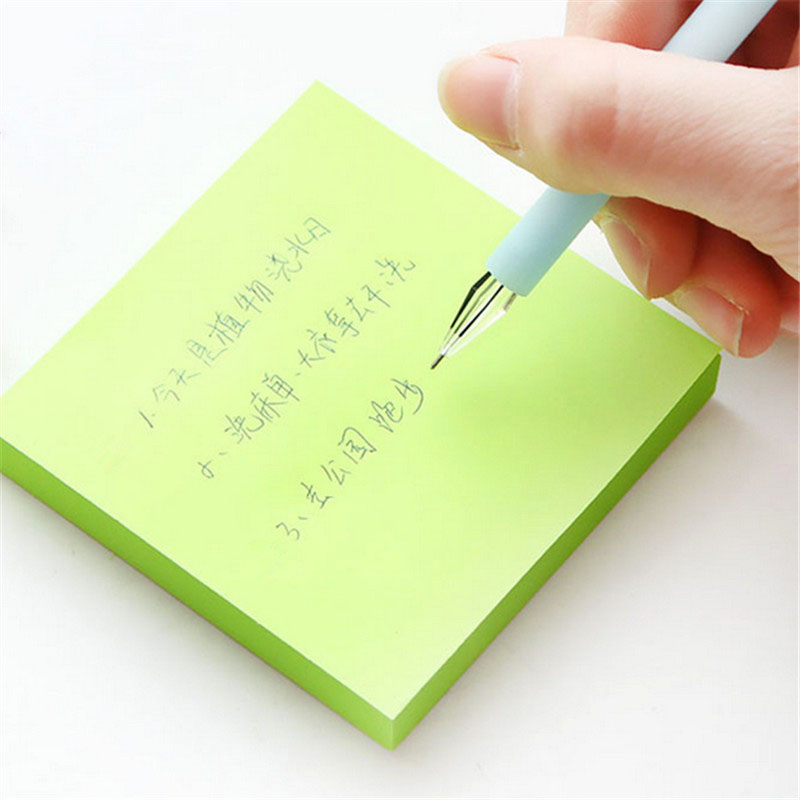 1.今天是植物浇水日
2、洗床单、大衣拿去干洗
3、去公园跑步